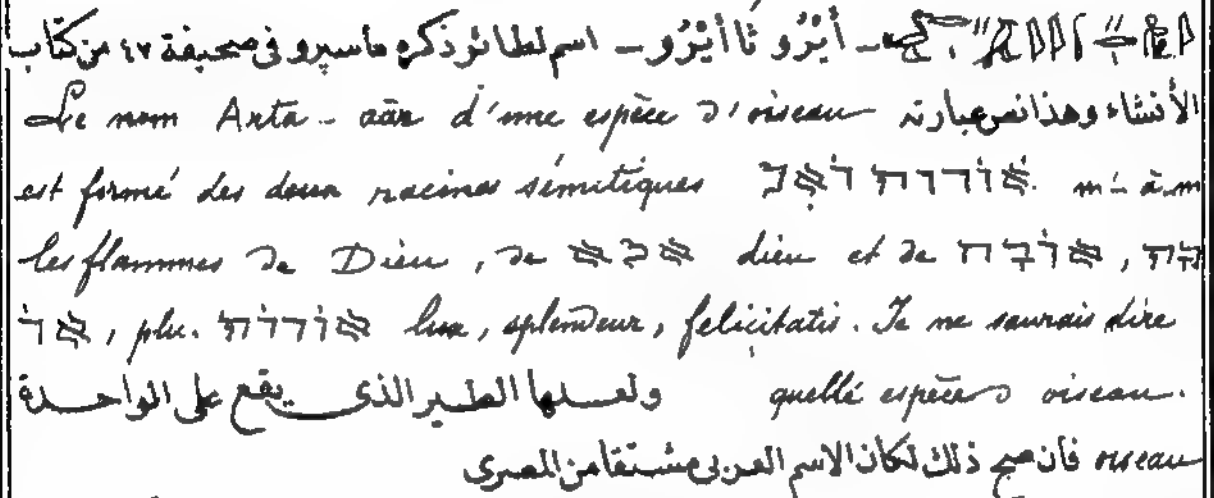 أَيْرُو ثَاأَيْرُو ـ اسم لطائر ذكره ماسپرو فى صحيفة ٤٧ من كتاب
الأنشاء وهذا نص عبارته Le nom Arta-aär d'une espèce d'oiseau
est formé des deux racines sémitiques m-à-m
les flammes de Dieu, de dieu et de
, plu. lux, splendeur, felicitatis. Je ne saurais dire
quellé espèce d oiseau. ولعلها الطير الذى يقع على الواحدة
oiseau فان صح ذلك لكان الاسم العربى مشتقا من المصرى